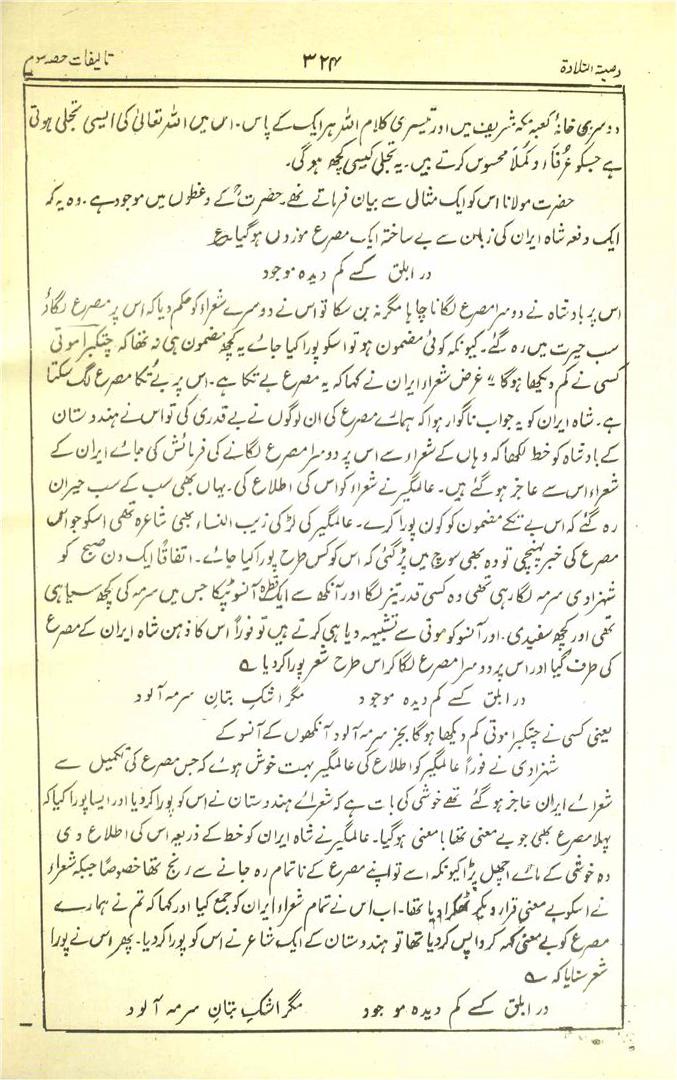 وصیۃ التلاوۃ ۳۲۴ تالیفات حصہ سوم
دوسری خانۂ کعبہ مکہ شریف میں اور تیسری کلام اللہ ہر ایک کے پاس۔ اس میں اللہ تعالیٰ کی ایسی تجلی ہوتی
ہے جسکو عُرفَاَ و کُملاَ محسوس کرتے ہیں۔ یہ تجلی کیسی کچھ ہوگی۔
حضرت مولانا اس کو ایک مثال سے بیان فرماتے تھے۔ حضرتؒ کے وعظوں میں موجود ہے۔ وہ یہ کہ
ایک دفعہ شاہ ایران کی زبان سے بے ساختہ ایک مصرع موزوں ہوگیا۔ ع
در ابلق کسے کم دیدہ موجود
اس پر بادشاہ نے دوسرا مصرع لگانا چاہا مگر نہ بن سکا تو اس نے دوسرے شعراء کو حکم دیا کہ اس پر مصرع لگاؤ
سب حیرت میں رہ گئے۔ کیونکہ کوئی مضمون ہو تو اسکو پورا کیا جائے یہ کچھ مضمون ہی نہ تھا کہ چتکبرا موتی
کسی نے کم دیکھا ہوگا ؟ غرض شعراء ایران نے کہا کہ یہ مصرع بے تکا ہے۔ اس پر بے تکا مصرع لگ سکتا
ہے۔ شاہ ایران کو یہ جواب ناگوار ہوا کہ ہمارے مصرع کی ان لوگوں نے بے قدری کی تو اس نے ہندوستان
کے بادشاہ کو خط لکھا کہ وہاں کے شعراء سے اس پر دوسرا مصرع لگانے کی فرمائش کی جائے ایران کے
شعراء اس سے عاجز ہوگئے ہیں۔ عالمگیر نے شعراء کو اس کی اطلاع کی۔ یہاں بھی سب کے سب حیران
رہ گئے کہ اس بے تکے مضمون کو کون پورا کرے۔ عالمگیر کی لڑکی زیب النساء بھی شاعرہ تھی اسکو جو اس
مصرع کی خبر پہنچی تو وہ بھی سوچ میں پڑ گئی کہ اس کو کس طرح پورا کیا جائے۔ اتفاقاً ایک دن صبح کو
شہزادی سرمہ لگا رہی تھی وہ کسی قدر تیز لگا اور آنکھ سے ایک قطرہ آنسو ٹپکا جس میں سرمہ کی کچھ سیاہی
تھی اور کچھ سفیدی۔ اور آنسو کو موتی سے تشبیہ دیا ہی کرتے ہیں تو فوراً اس کا ذہن شاہ ایران کے مصرع
کی طرف گیا اور اس پر دوسرا مصرع لگا کر اس طرح شعر پورا کر دیا ؎
در ابلق کسے کم دیدہ موجود مگر اشکِ بتانِ سرمہ آلود
یعنی کسی نے چتکبرا موتی کم دیکھا ہوگا بجز سرمہ آلود آنکھوں کے آنسو کے
شہزادی نے فوراً عالمگیر کو اطلاع کی عالمگیر بہت خوش ہوئے کہ جس مصرع کی تکمیل سے
شعرائے ایران عاجز ہوگئے تھے خوشی کی بات ہے کہ شعرائے ہندوستان نے اس کو پورا کر دیا اور ایسا پورا کیا کہ
پہلا مصرع بھی جو بے معنی تھا با معنی ہوگیا۔ عالمگیر نے شاہ ایران کو خط کے ذریعہ اس کی اطلاع دی
وہ خوشی کے مارے اچھل پڑا کیونکہ اسے تو اپنے مصرع کے ناتمام رہ جانے سے رنج تھا خصوصاً جبکہ شعراء
نے اسکو بے معنی قرار دیکر ٹھکرا دیا تھا۔ اب اس نے تمام شعراء ایران کو جمع کیا اور کہا کہ تم نے ہمارے
مصرع کو بے معنی کہہ کر واپس کر دیا تھا تو ہندوستان کے ایک شاعر نے اس کو پورا کر دیا۔ پھر اس نے پورا
شعر سنایا کہ ؎
در ابلق کسے کم دیدہ موجود مگر اشکِ بتانِ سرمہ آلود